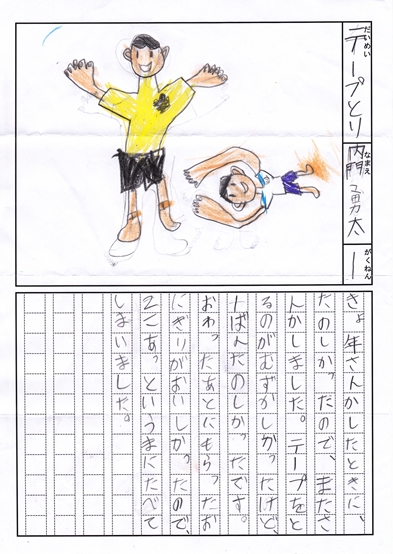 だいめい
テープとり
なまえ
内門勇太
がくねん
一
きょ年さんかしたときに、
たのしかったので、またさ
んかしました。テープをと
るのがむずかしかったけど、
一ばんたのしかったです。
おわったあとにもらったお
にぎりがおいしかったので、
2こあっというまにたべて
しまいました。